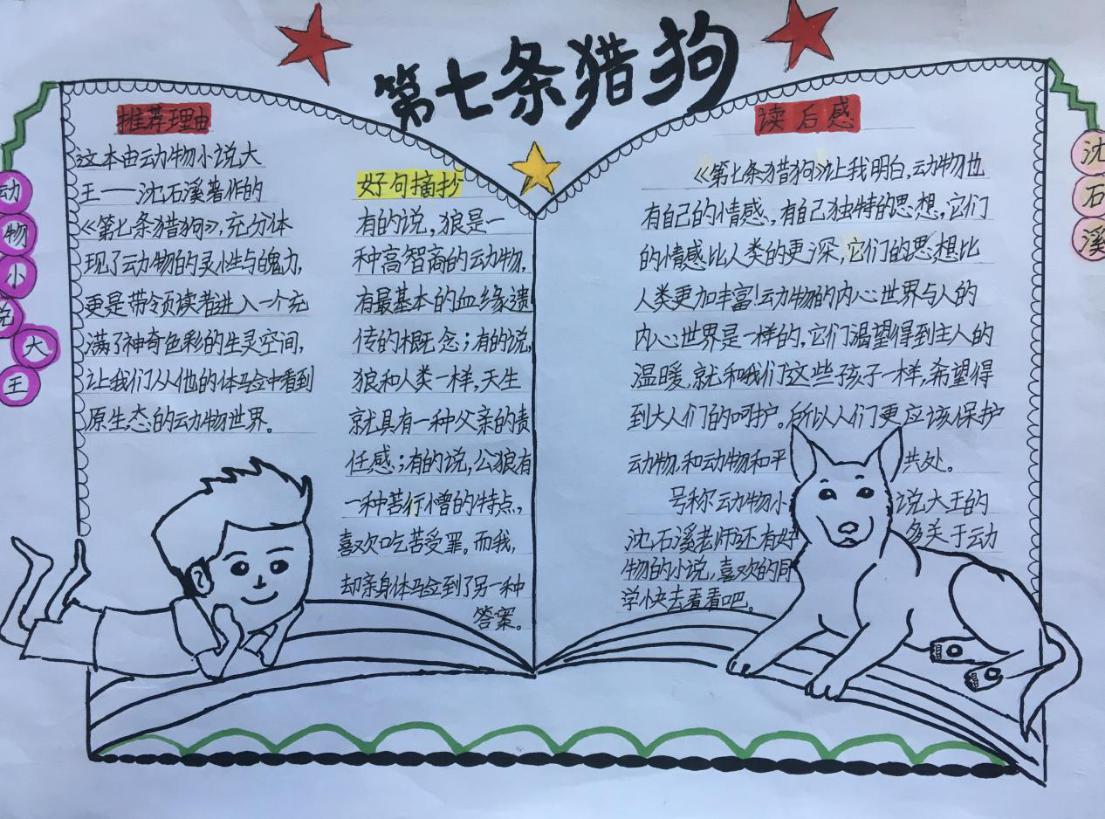 第七条猎狗
动
物
小
说
大
王
推荐理由
这本由动物小说大
王——沈石溪著作的
《第七条猎狗》，充分体
现了动物的灵性与魄力，
更是带领读者进入一个充
满了神奇色彩的生灵空间，
让我们从他的体验中看到
原生态的动物世界。
好句摘抄
有的说，狼是一
种高智商的动物，
有最基本的血缘遗
传的概念；有的说，
狼和人类一样，天生
就具有一种父亲的责
任感；有的说，公狼有
一种苦行僧的特点，
喜欢吃苦受罪。而我，
却亲身体验到了另一种
答案。
读后感
《第七条猎狗》让我明白，动物也
有自己的情感，有自己独特的思想，它们
的情感比人类的更深，它们的思想比
人类更加丰富！动物的内心世界与人的
内心世界是一样的，它们渴望得到主人的
温暖，就和我们这些孩子一样，希望得
到大人们的呵护。所以人们更应该保护
动物，和动物和平共处。
号称动物小说大王的
沈石溪老师还有好多关于动
物的小说，喜欢的同
学快去看看吧。
沈
石
溪